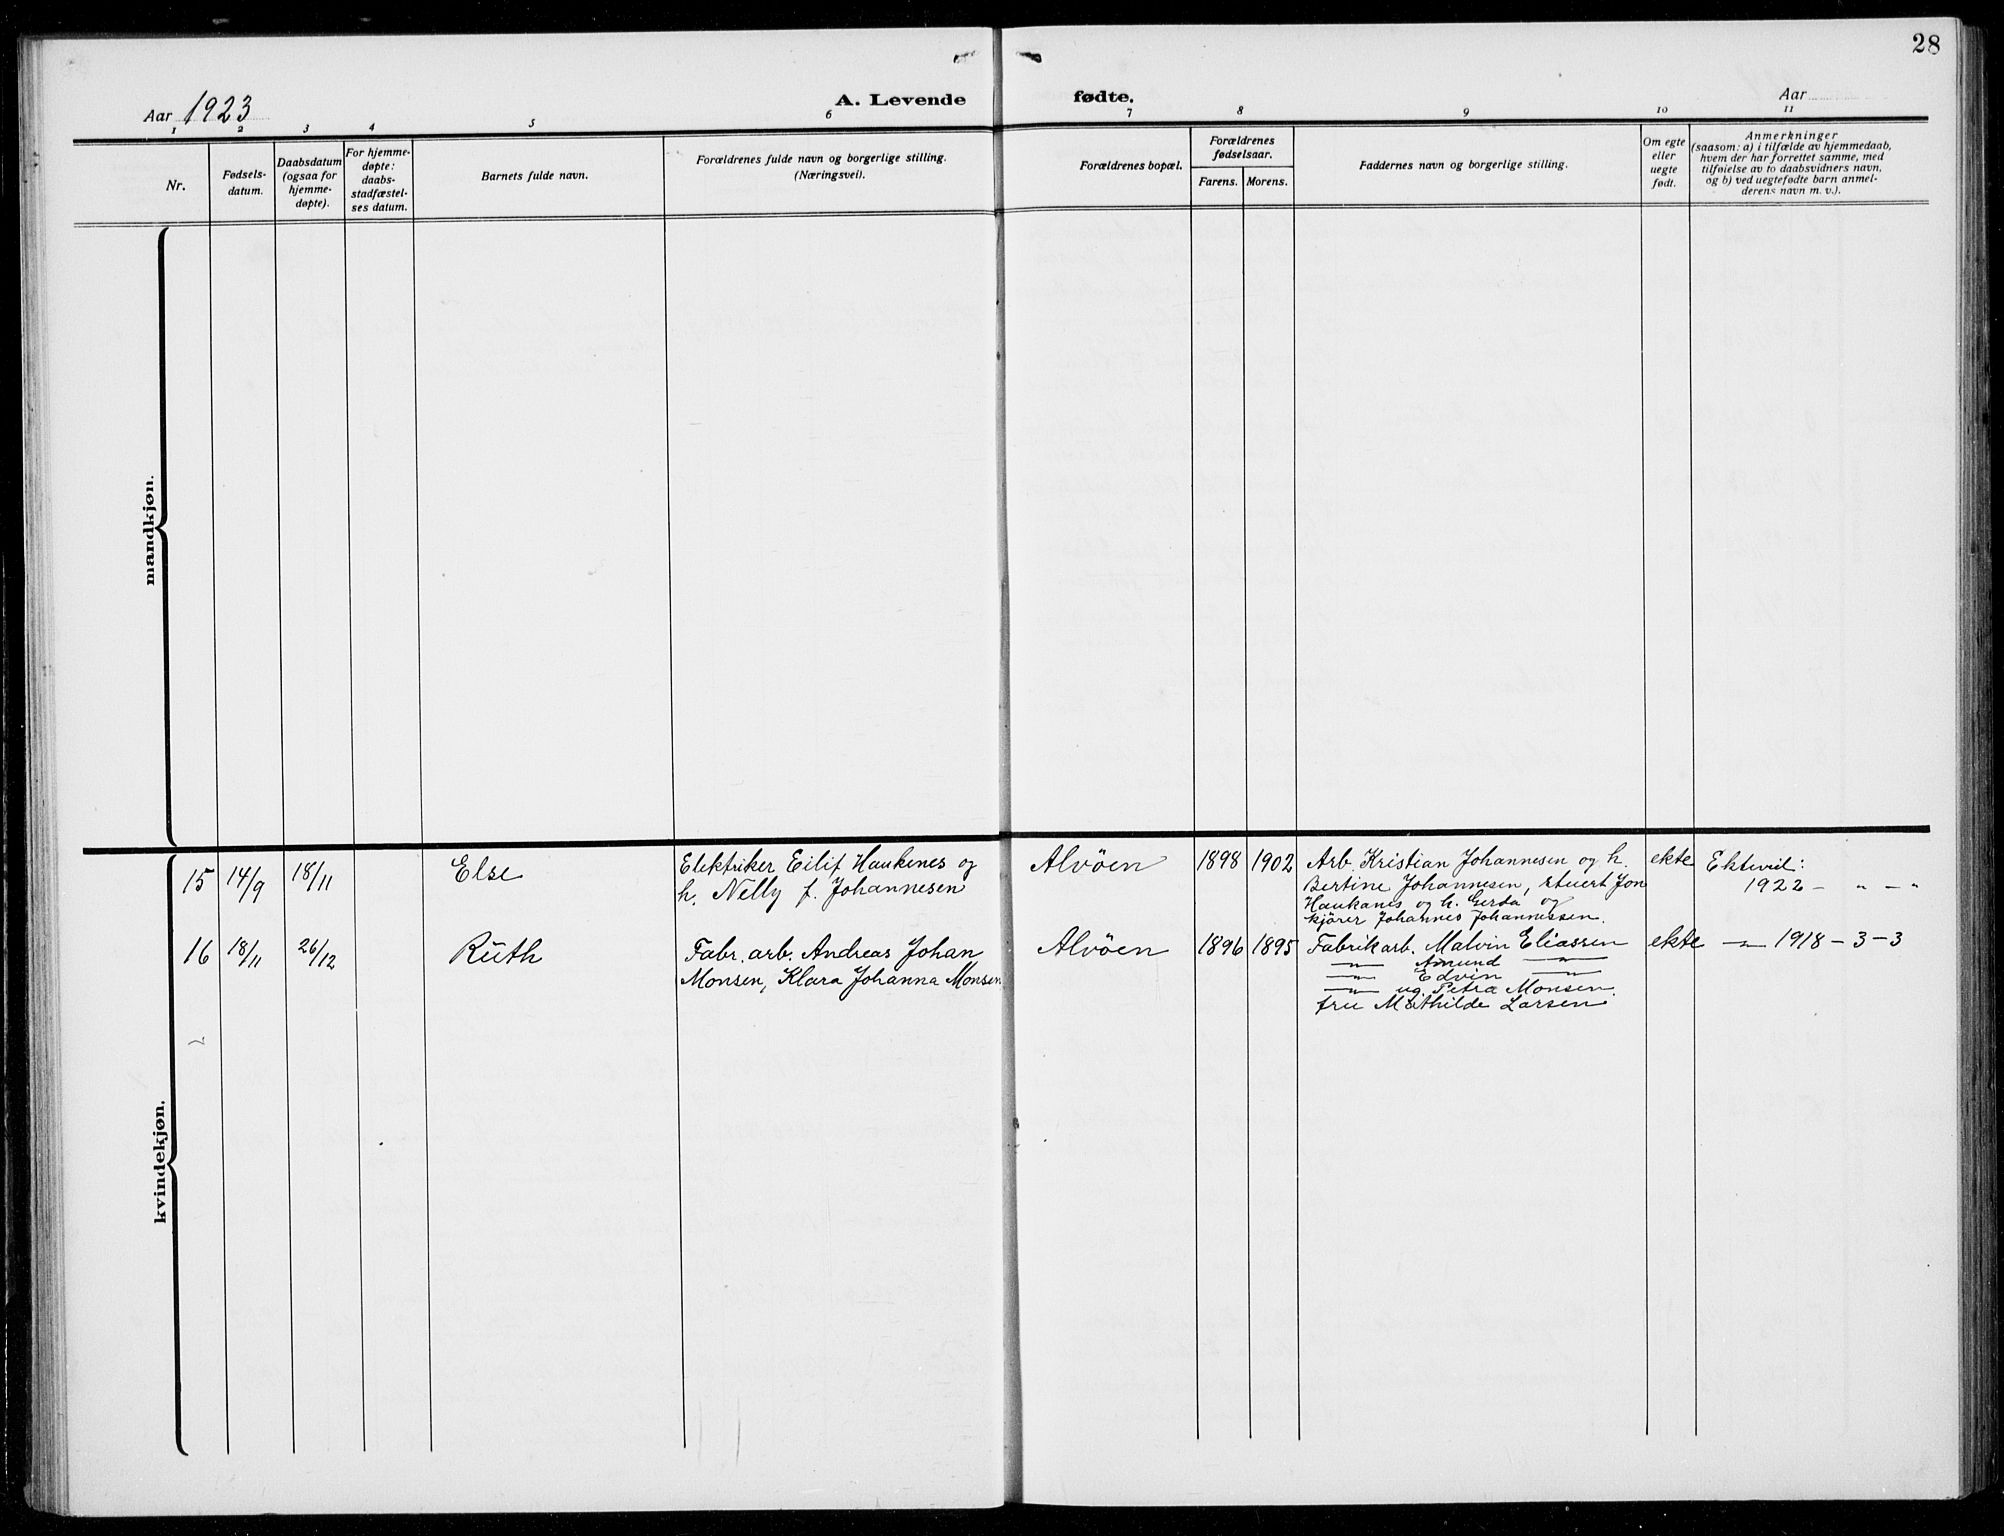 28
Aar 1923
A. Levende fødte.
Aar
1 2 3 4 5 6 7 8 9 10 11
Nr.
Fødsels-
datum.
Daabsdatum
(ogsaa for
hjemme-
døpte).
For hjemme-
døpte:
daabs-
stadfæstel-
ses datum.
Barnets fulde navn.
Forældrenes fulde navn og borgerlige stilling.
(Næringsvei).
Forældrenes bopæl.
Forældrenes
fødselsaar.
Farens. Morens.
Faddernes navn og borgerlige stilling.
Om egte
eller
uegte
født.
Anmerkninger
(saasom: a) i tilfælde av hjemmedaab,
hvem der har forrettet samme, med
tilføielse av to daabsvidners navn,
og b) ved uegtefødte barn anmel-
derens navn m. v.).
mandkjøn.
kvindekjøn.
15 14/9 18/11 Else
Elektriker Eilif Haukenes og
h. Nelly f. Johannesen
Alvöen 1898 1902
Arb. Kristian Johannesen og h.
Bertine Johannesen, stuert Jon
Haukanes og h. Gerda og
kjører Johannes Johannessen.
ekte
Ektevid:
1922 - " - "
16 18/11 26/12 Ruth
Fabr. arb. Andreas Johan
Monsen, Klara Johanna Monsen
Alvöen 1896 1895
Fabrikarb. Malvin Eliassen
—"— Amund —"—
—"— Edvin —"—
—"— ug. Petra Monsen.
fru Mathilde Larsen
ekte
—"— 1918 - 3 - 3